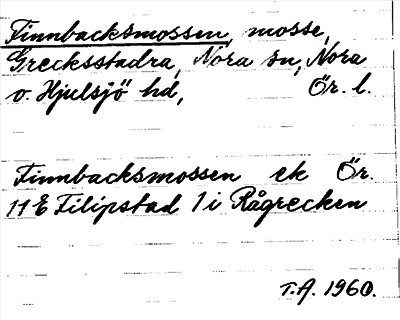 Finnbacksmossen, mosse,
Grecksstadra, Nora sn, Nora
o. Hjulsjö hd, Ör. l.
Finnbacksmossen ek Ör.
11 E Filipstad 1 i Rågrecken
T.A. 1960.